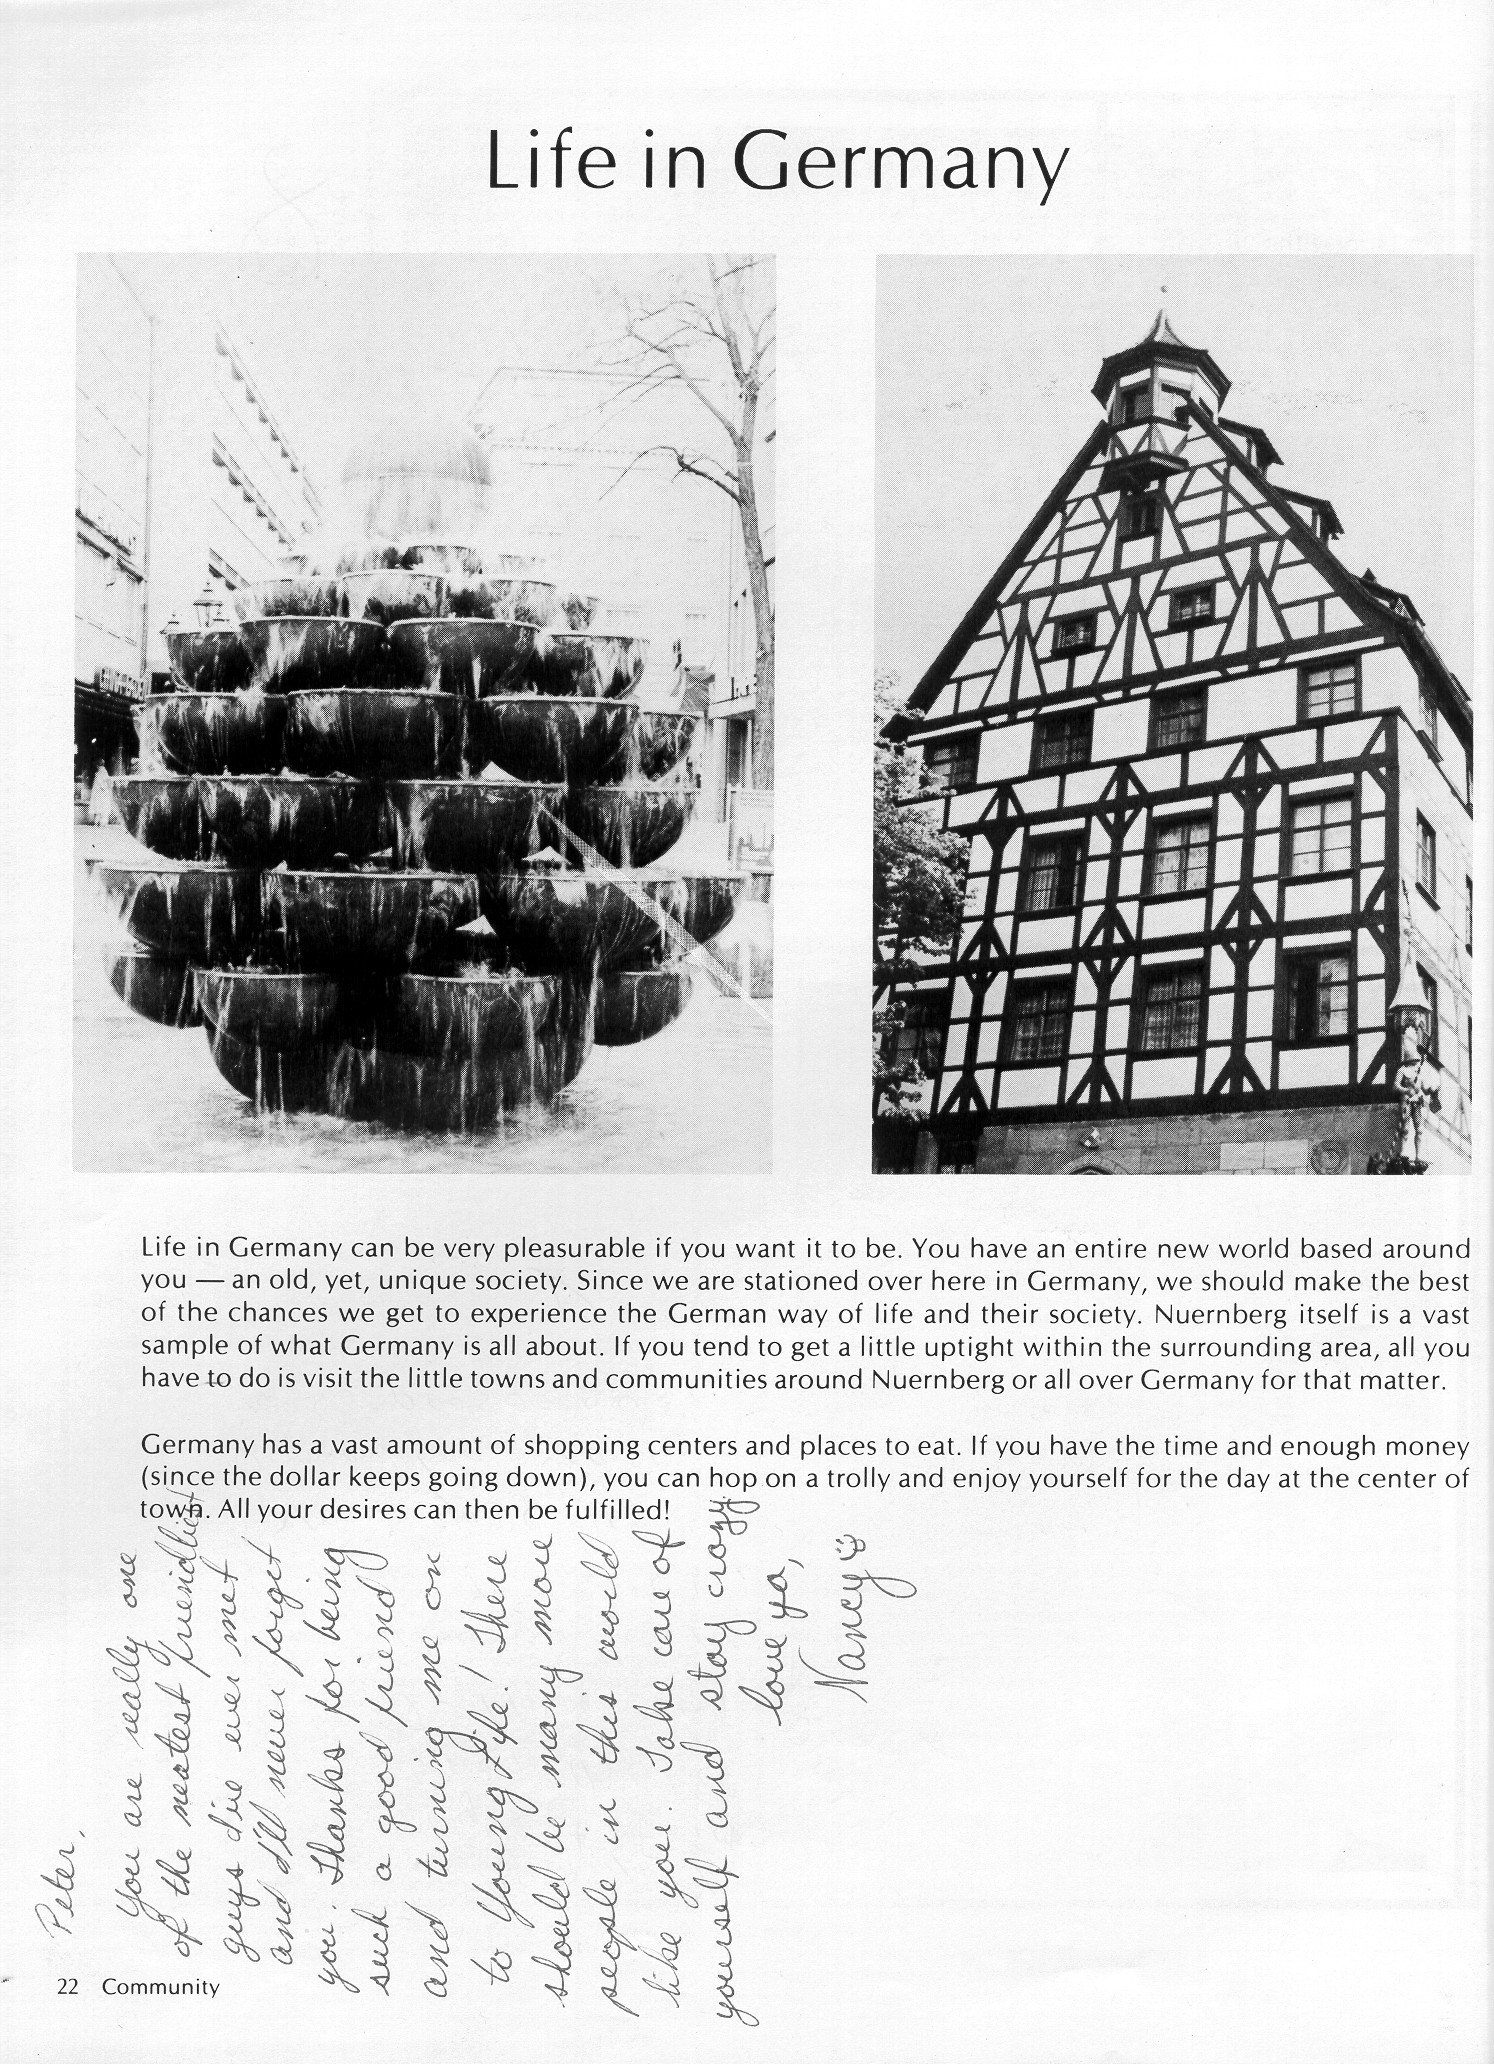 Life in Germany
Life in Germany can be very pleasurable if you want it to be. You have an entire new world based around
you — an old, yet, unique society. Since we are stationed over here in Germany, we should make the best
of the chances we get to experience the German way of life and their society. Nuernberg itself is a vast
sample of what Germany is all about. If you tend to get a little uptight within the surrounding area, all you
have to do is visit the little towns and communities around Nuernberg or all over Germany for that matter.
Germany has a vast amount of shopping centers and places to eat. If you have the time and enough money
(since the dollar keeps going down), you can hop on a trolly and enjoy yourself for the day at the center of
town. All your desires can then be fulfilled!
Peter,
You are really one
of the neatest friendliest
guys I've ever met
and I'll never forget
you. Thanks for being
such a good friend
and turning me on
to Young Life! There
should be many more
people in this world
like you. Take care of
yourself and stay crazy.
love ya,
Nancy
22 Community